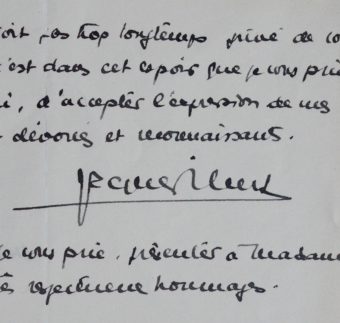 soit pas trop longtemps privé de vo
c'est dans cet espoir que je vous prie
i, d'accepter l'expression de mes
dévoués et reconnaissants.
je vous prie, présenter à Madam
très respectueux hommages.